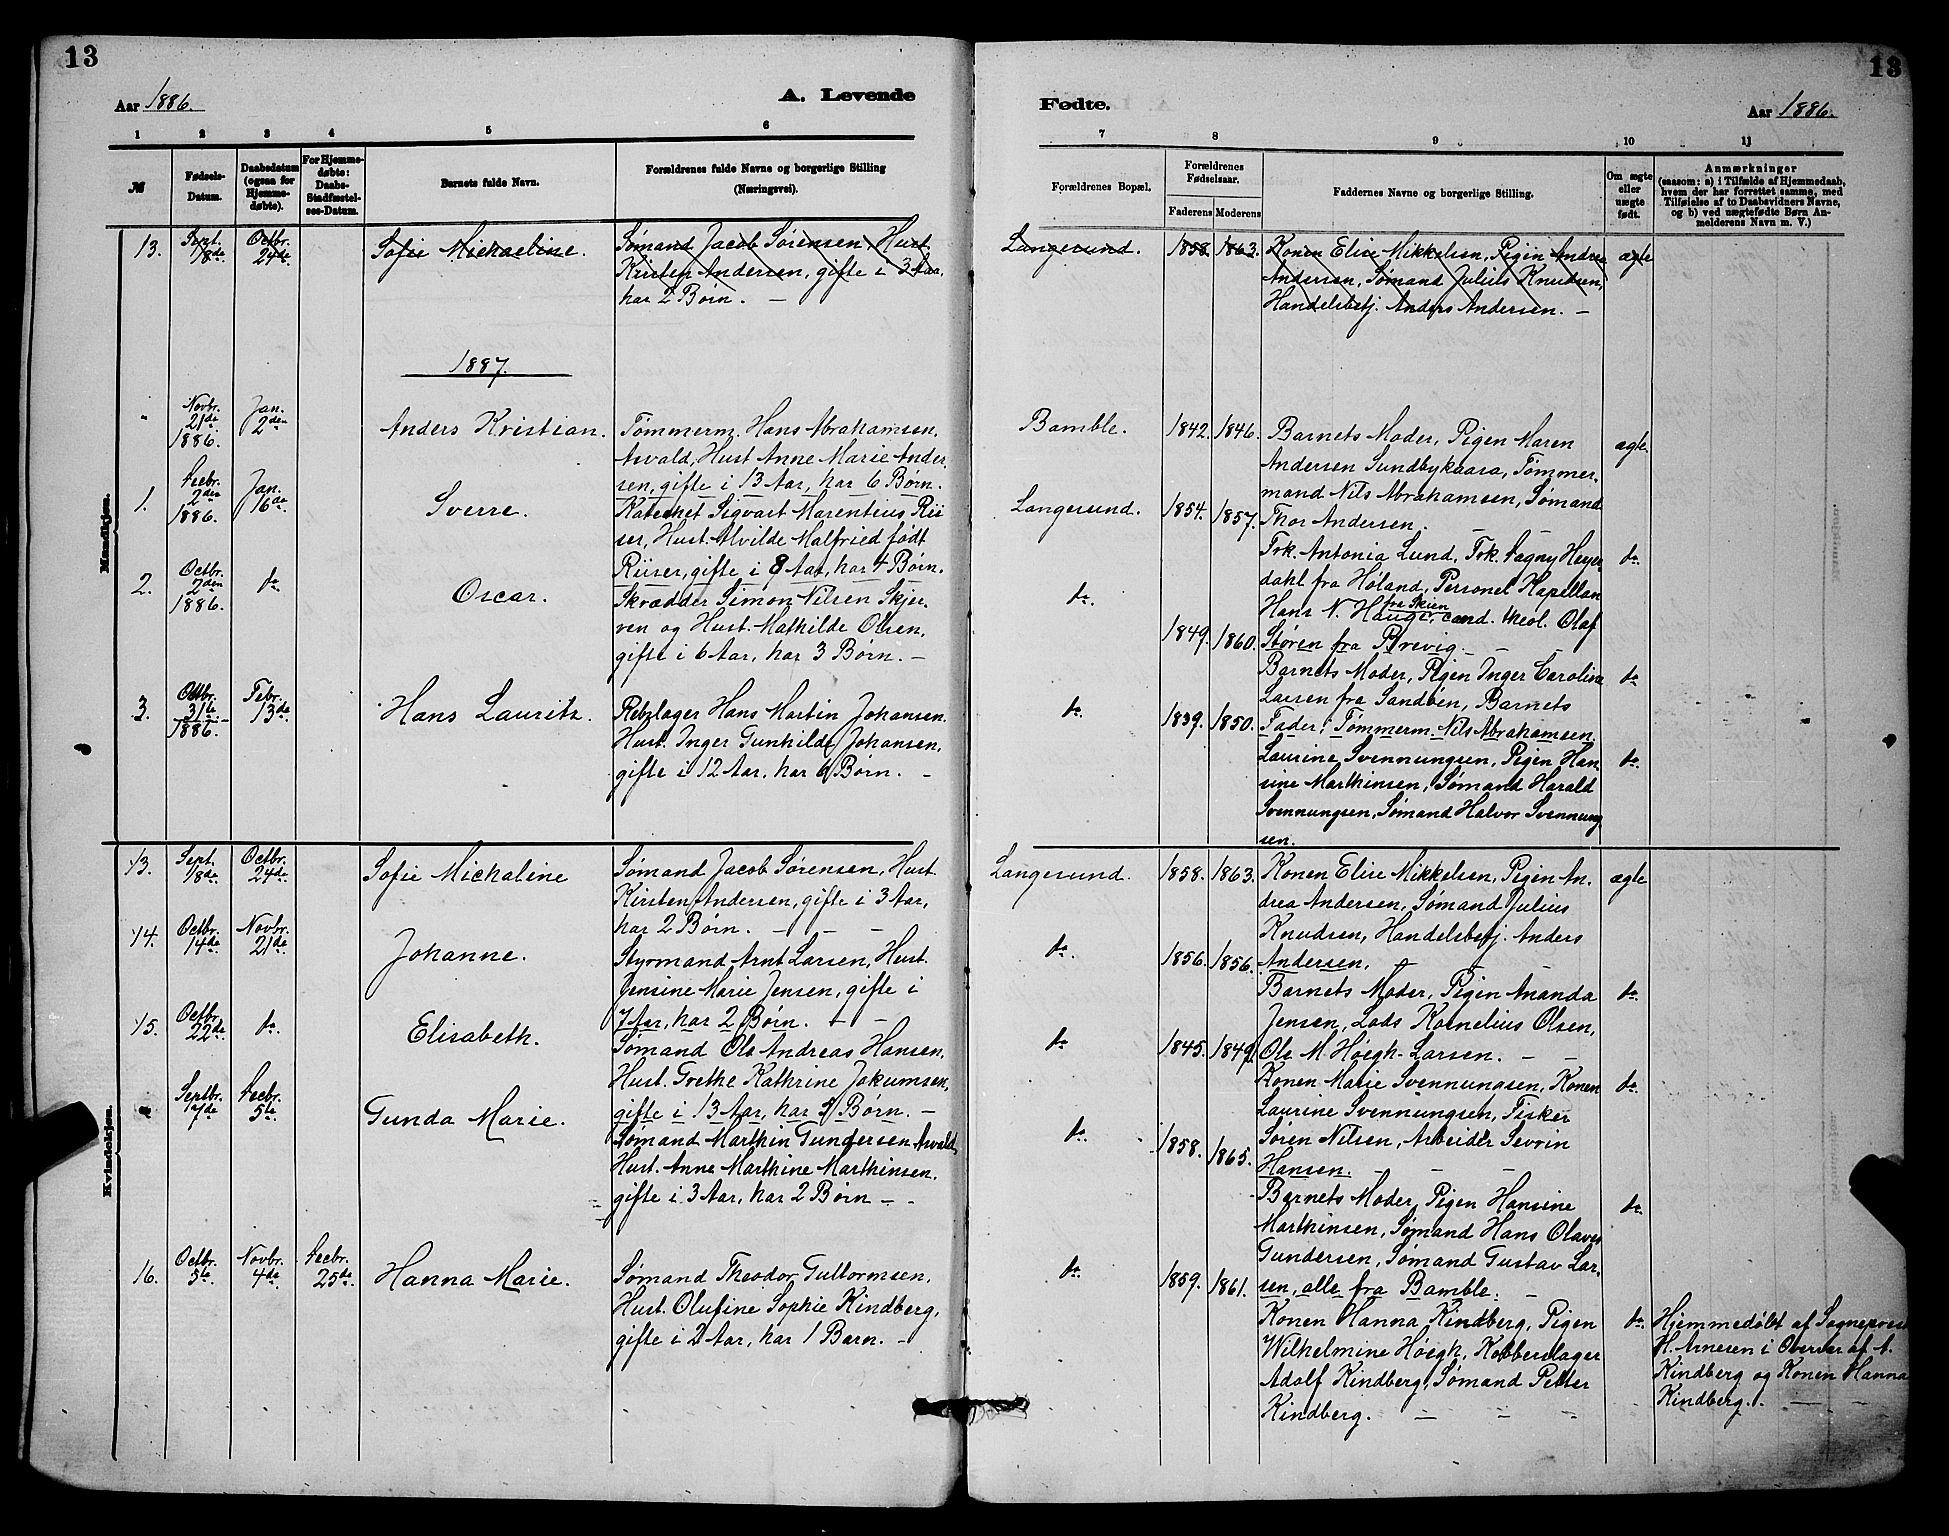 13
Aar 1886.
A. Levende
1 2 3 4 5 6
№
Fødsels-
Datum.
Daabsdatum
(ogsaa for
Hjemme-
døbte).
For Hjemme-
døbte:
Daabs-
Stadfæstel-
ses-Datum.
Barnets fulde Navn.
Forældrenes fulde Navne og borgerlige Stilling
(Næringsvei).
Mandkjøn.
13.
Sept.
18de
Octbr.
24de
Sofie Michaeline.
Sømand Jacob Sørensen, Hust.
Kirsten Andersen, gifte i 3 Aar,
har 2 Børn. —
1887.
"
Novbr.
21de
1886.
Jan.
2den
Anders Kristian.
Tømmerm. Hans Abrahamsen,
Asvald, Hust. Anne Marie Ander-
sen, gifte i 13 Aar, har 6 Børn.
1.
Decbr.
2den
1886.
Jan.
16de
Sverre.
Kateket Sigvart Marentius Rii
ser, Hust. Alvilde Malfried født
Riiser, gifte i 8 Aar, har 4 Børn.
2.
Octbr.
2den
1886.
do.
Oscar.
Skrædder Simon Nilsen Skjer-
ven og Hust. Mathilde Olsen,
gifte i 6 Aar, har 3 Børn. —
3.
Octbr.
31te
1886.
Febr.
13de
Hans Lauritz.
Rebslager Hans Martin Johansen.
Hust. Inger Gunhilde Johansen,
gifte i 12 Aar, har 6 Børn. —
Kvindekjøn.
13.
Sept.
18de
Octbr.
24de
Sofie Michaline
Sømand Jacob Sørensen, Hust.
Kirsten Andersen, gifte i 3 Aar,
har 2 Børn. — — —
14.
Octbr.
14de
Novbr.
21de
Johanne.
Styrmand Arnt Larsen, Hust.
Jensine Marie Jensen, gifte i
7 Aar, har 2 Børn. — —
15.
Octbr.
22de
do.
Elisabeth.
Sømand Ole Andreas Hansen,
Hust. Grethe Kathrine Jokumsen,
gifte i 13 Aar, har 5 Børn. —
"
Septbr.
7de
Decbr.
5te
Gunda Marie.
Sømand Marthin Gundersen Asvald,
Hust. Anne Marthine Marthinsen,
gifte i 3 Aar, har 2 Børn — -
16.
Octbr.
5te
Novbr.
4de
Decbr.
25de
Hanna Marie.
Sømand Theodor Guttormsen,
Hust. Olufine Sophie Kindberg,
gifte i 2 Aar, har 1 Barn. —
Fødte.
Aar 1886.
13
7 8 9 10 11
Forældrenes Bopæl.
Forældrenes
Fødselsaar.
Faderens Moderens
Faddernes Navne og borgerlige Stilling.
Om ægte
eller
uægte
født.
Anmærkninger
(saasom: a) i Tilfælde af Hjemmedaab,
hvem der har forrettet samme, med
Tilføielse af to Daabsvidners Navne,
og b) ved uægtefødte Børn An-
melderens Navn m. V.)
Langesund. 1858. 1863.
Konen Elise Mikkelsen, Pigen Andrea
Andersen, Sømand Julius Knudsen,
Handelsbetj. Anders Andersen. —
ægte
Bamble. 1842. 1846.
Barnets Moder, Pigen Maren
Andersen Sundbykaasa, Tømmer
mand Nils Abrahamsen, Sømand
Thor Andersen.
ægte.
Langesund. 1854. 1857.
Frk. Antonia Lund, Frk. Dagny Heyer
dahl fra Høland, Personel Kapellan
Hans N. Hauge, fra Skien cand. theol. Olaf
Støren fra Brevig. — —
do.
do. 1849. 1860.
Barnets Moder, Pigen Inger Caroline
Larsen fra Sandøen, Barnets
Fader, Tømmerm. Nils Abrahamsen.
do.
do. 1839. 1850.
Laurine Svennungsen, Pigen Han-
sine Marthinsen, Sømand Harald
Svennungsen, Sømand Halvor Svennung
sen.
do.
Langesund. 1858. 1863.
Konen Elise Mikkelsen, Pigen An-
drea Andersen, Sømand Julius
Knudsen, Handelsbetj. Anders
Andersen. — —
ægte
do. 1856. 1856.
Barnets Moder, Pigen Ananda
Jensen, Lods Kornelius Olsen,
Ole M. Høegh-Larsen. — —
do.
do 1845. 1849.
Konen Marie Svennungsen, Konen
Laurine Svennungsen, Fisker
Søren Nilsen, Arbeider Sevrin
Hansen. — — —
do.
do. 1858. 1865.
Barnets Moder, Pigen Hansine
Marthinsen, Sømand Hans Olaves
Gundersen, Sømand Gustav Lar-
sen, alle fra Bamble. —
do.
do 1859. 1861.
Konen Hanna Kindberg, Pigen
Wilhelmine Høegh, Kobberslager
Adolf Kindberg, Sømand Petter
Kindberg. — — —
do.
Hjemmedøbt af Sognepræst
H. Arnesen i Overvær af A.
Kindberg og Konen Hanna
Kindberg. — —